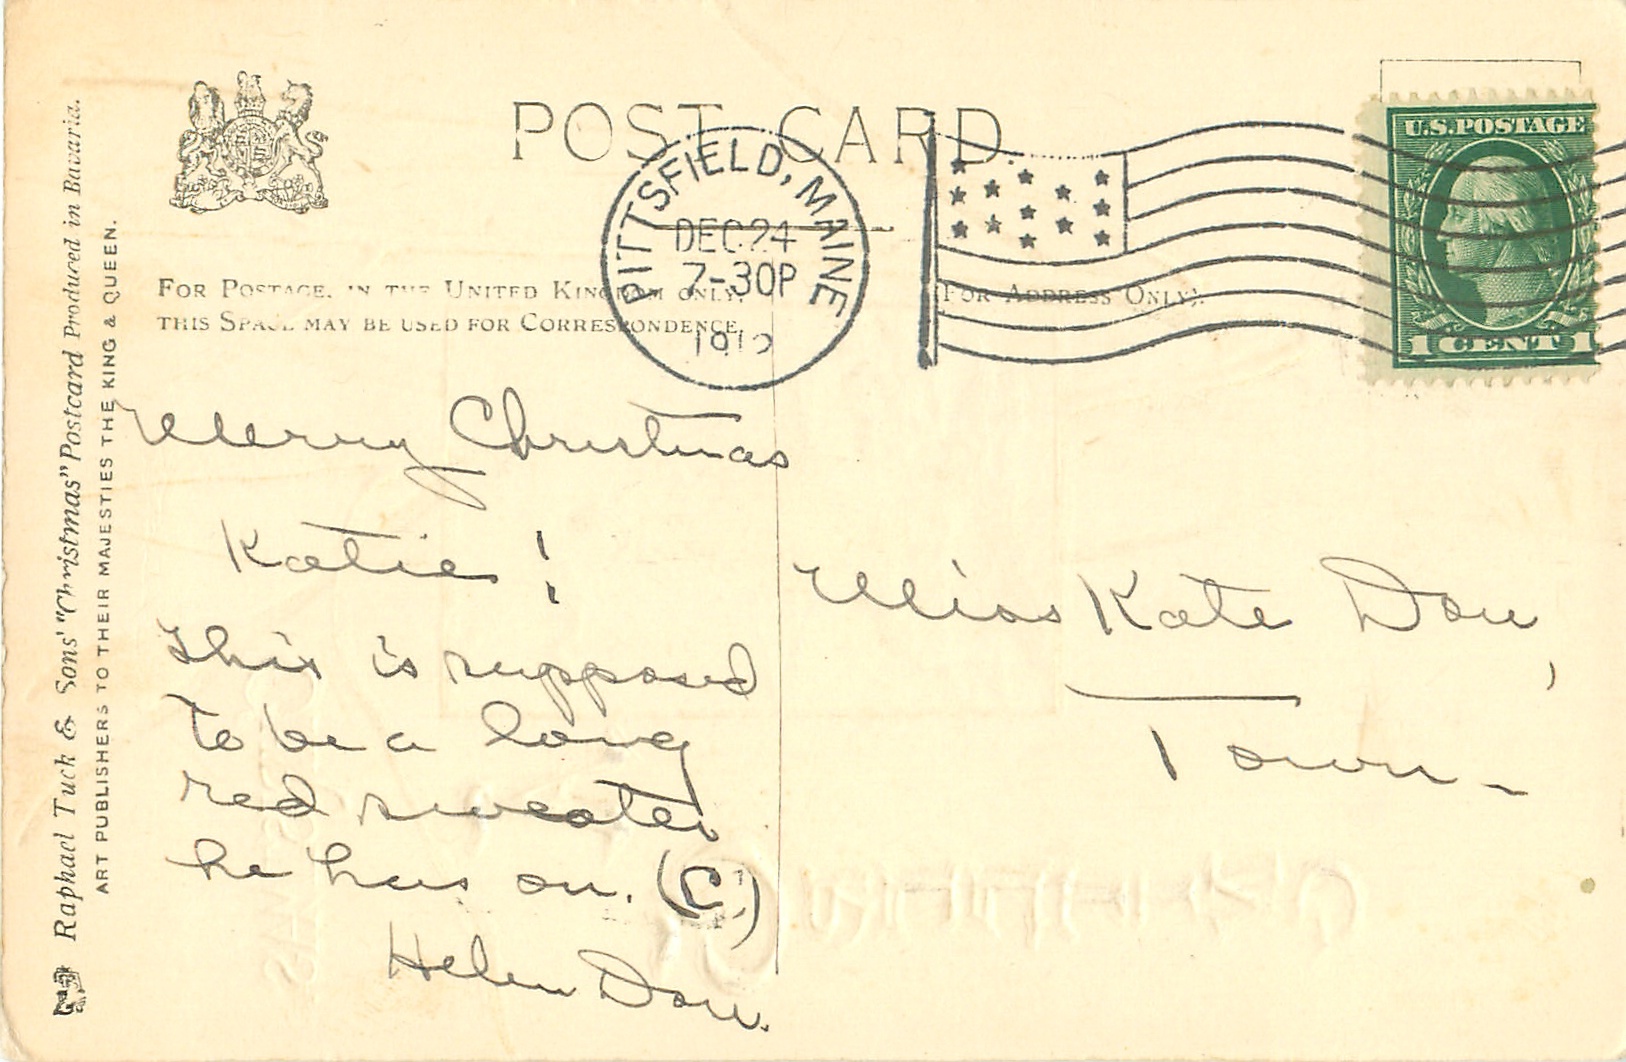 POST CARD.
PITTSFIELD, MAINE
DEC 24
7-30P
U.S. POSTAGE
1 CENT 1
FOR POSTAGE IN THE UNITED KINGDOM ONLY,
THIS SPACE MAY BE USED FOR CORRESPONDENCE.
(FOR ADDRESS ONLY).
Raphael Tuck & Sons' "Christmas" Postcard Produced in Bavaria.
ART PUBLISHERS TO THEIR MAJESTIES THE KING & QUEEN.
Merry Christmas
Katie!
This is supposed
to be a long
red sweater
he has on. (C.)
Helen Dow.
Miss Kate Dow,
Town -